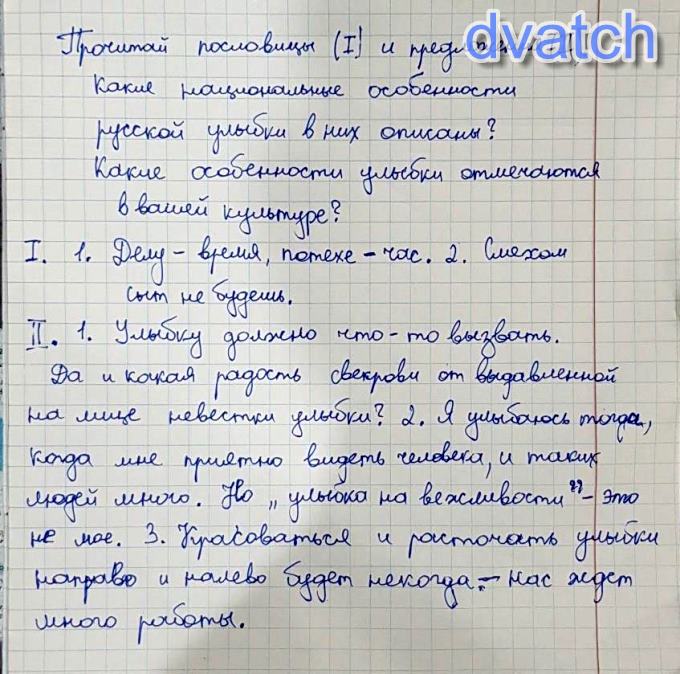 dvatch
Прочитай пословицы (I) и
Какие национальные особенности
русской улыбки в них описаны?
Какие особенности улыбки отмечаются
в вашей культуре?
I. 1. Делу - время, потехе - час. 2. Смехом
сыт не будешь.
II. 1. Улыбку должно что-то вызвать.
Да и какая радость свекрови от выдавленной
на лице невестки улыбки? 2. Я улыбаюсь тогда,
когда мне приятно видеть человека, и таких
людей много. Но „улыбка на вежливости” - это
не мое. 3. Красоваться и расточать улыбки
направо и налево будет некогда - нас ждет
много работы.